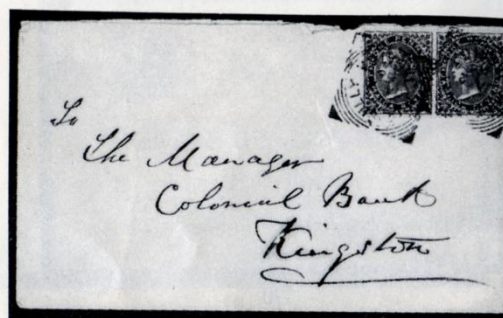 To
The Manager
Colonial Bank
Kingston